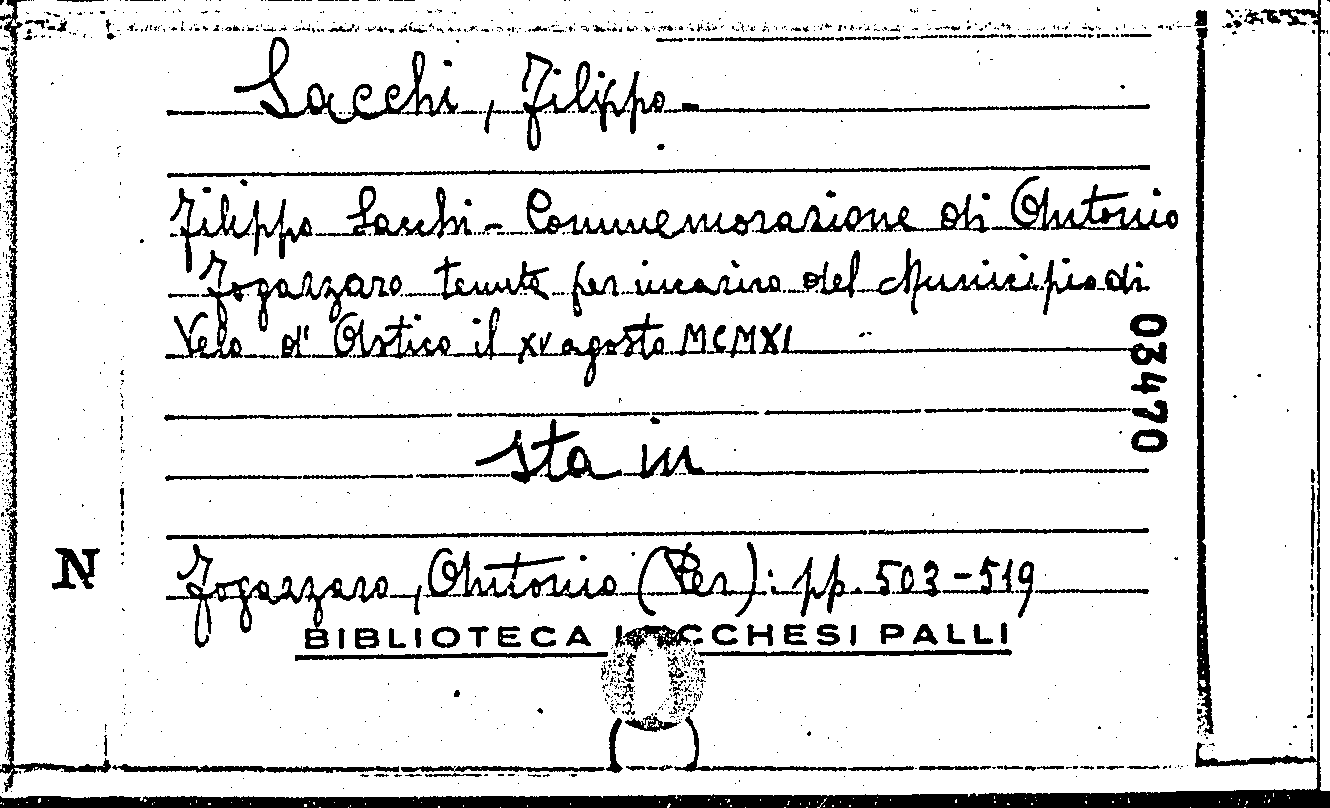 Sacchi, Filippo -
Filippo Sacchi - Commemorazione di Antonio
Fogazzaro tenuta per incarico del Municipio di
Velo d'Astico il XV agosto MCMXI
03470
sta in
N
Fogazzaro, Antonio (Per): pp. 503-519
BIBLIOTECA LUCCHESI PALLI